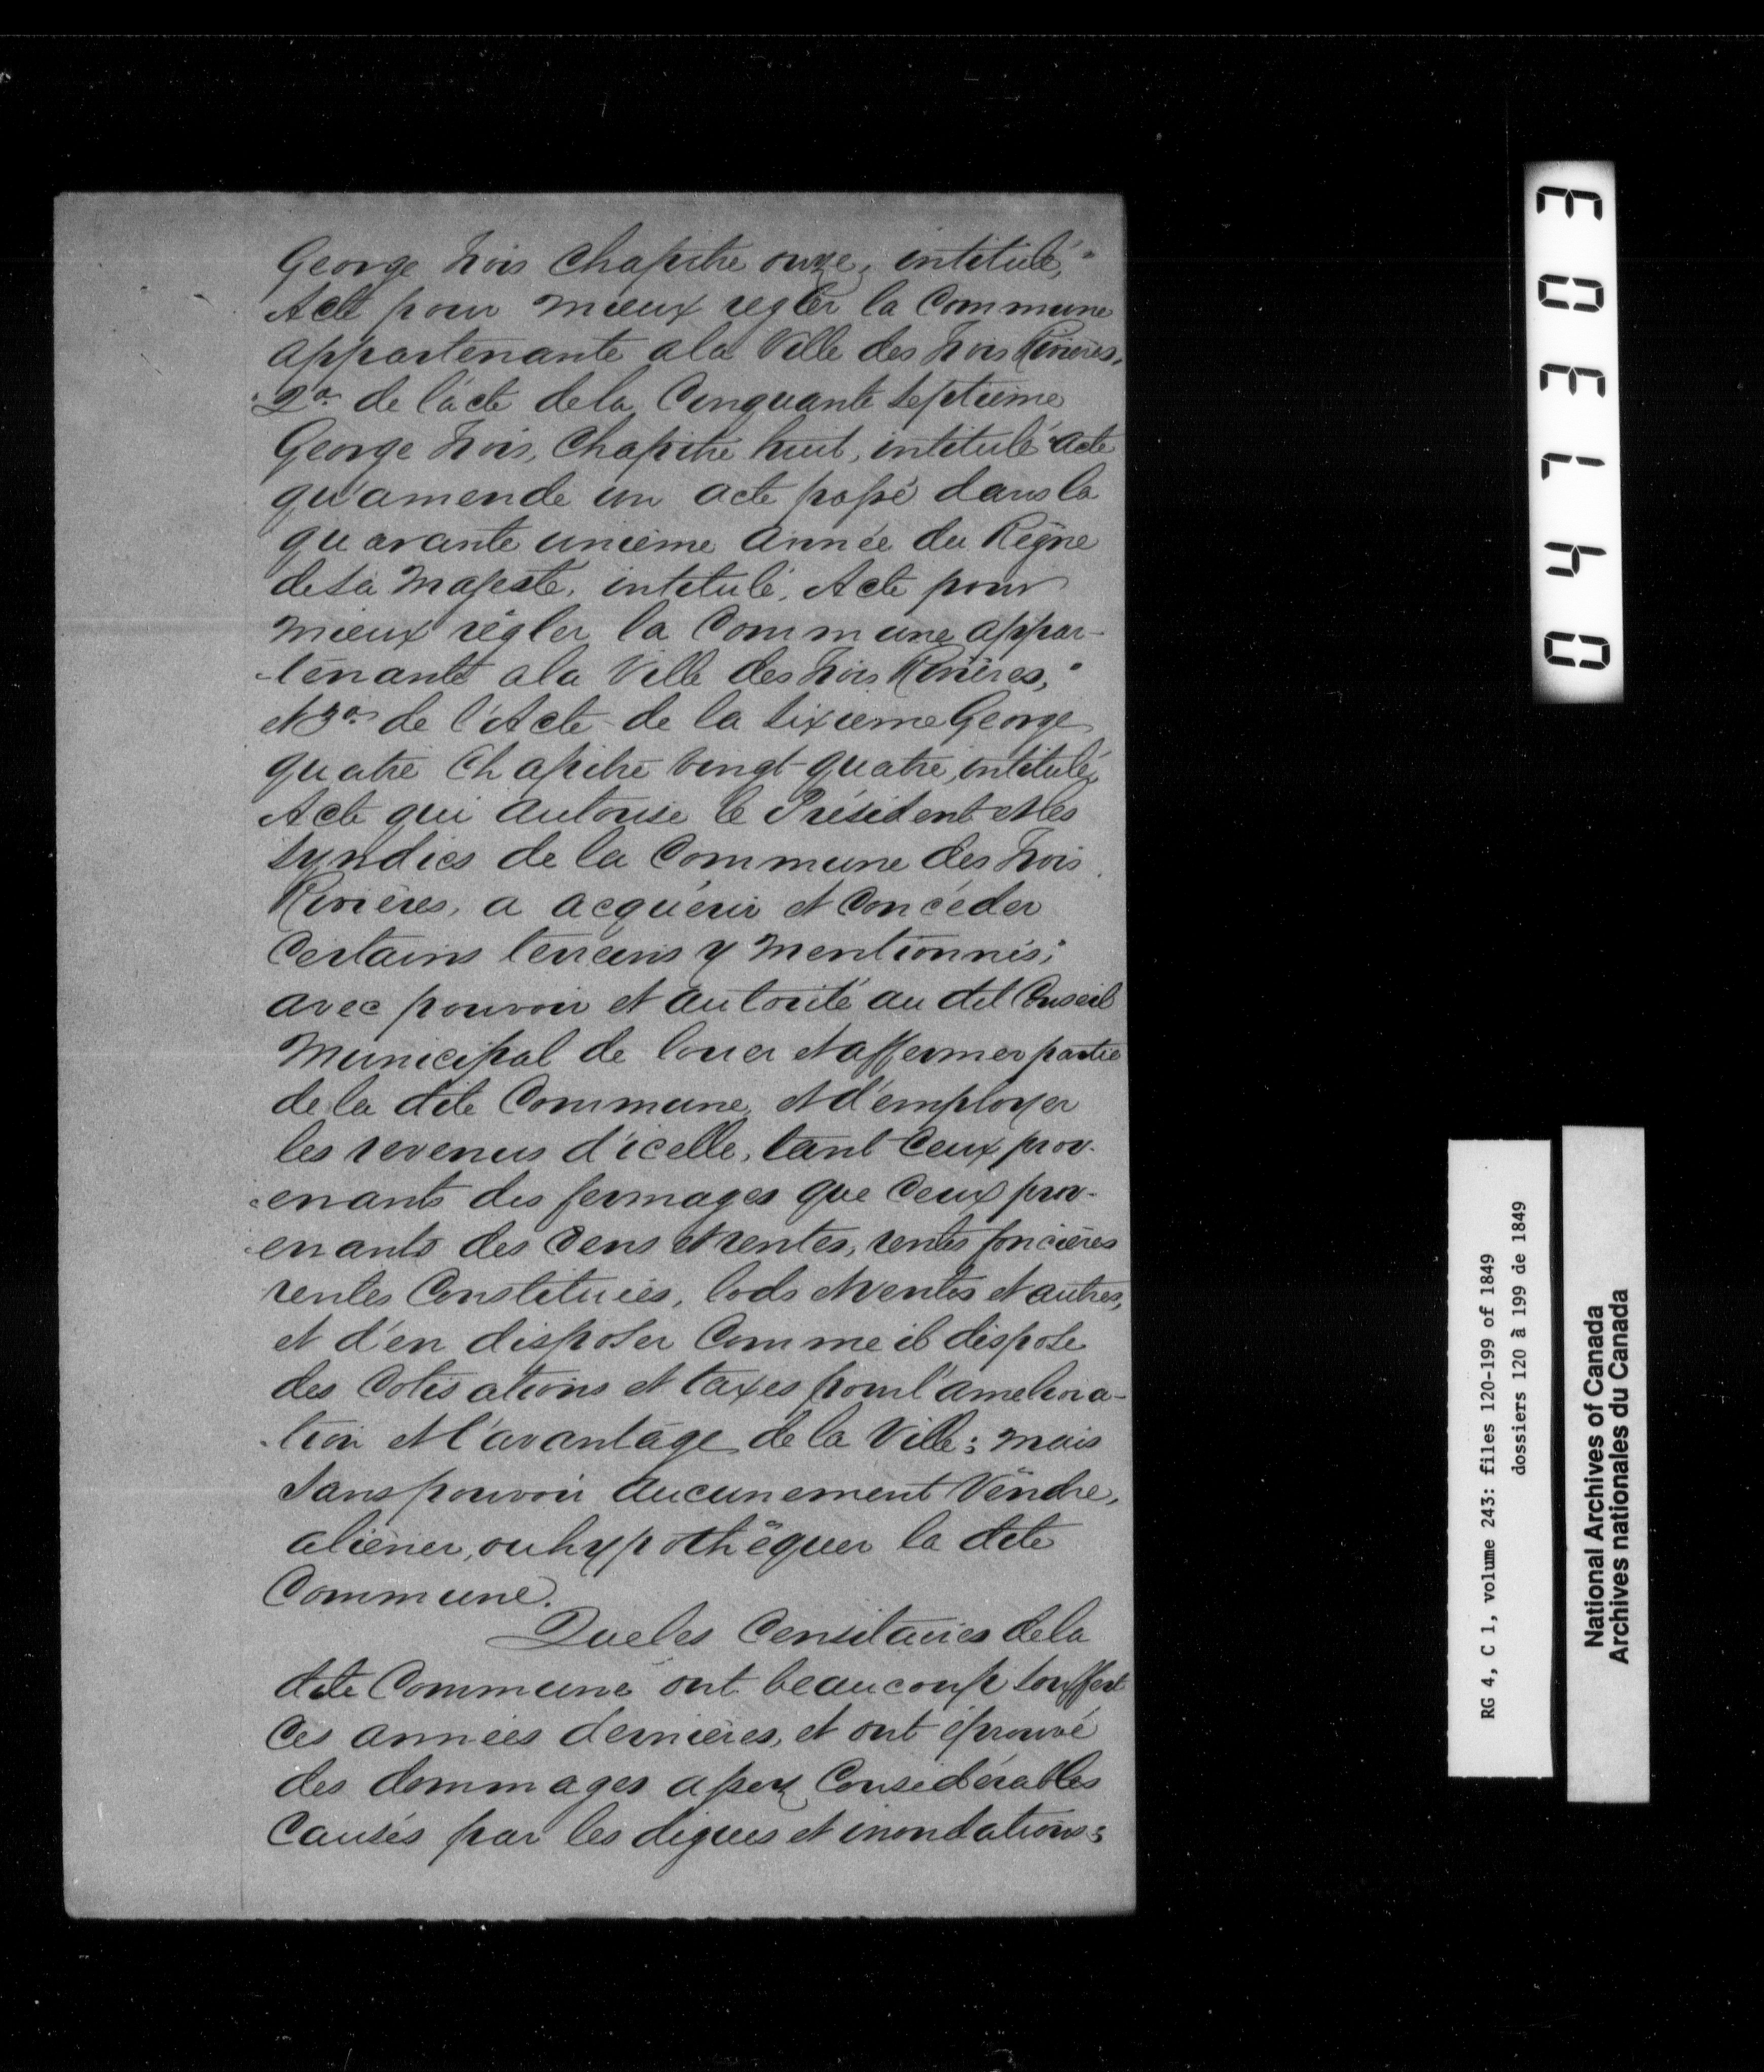 George Trois Chapitre onze, intitulé, "
Acte pour mieux regler la Commune
appartenante a la Ville des Trois Rivieres,
"2o. de l'acte de la Cinquante Septieme
George Trois, Chapitre huit, intitulé "Acte
qu'amende un acte passé dans la
quarante unième Année du Règne
de Sa Majesté, intitulé, Acte pour
mieux régler la Commune appar-
-tenante a la Ville des Trois Rivières,"
et 3o. de l'Acte de la Sixieme George
quatre Chapitre vingt-quatre, intitulé,
Acte qui autorise le Président et les
Syndics de la Commune des Trois
Rivières, a acquérir et Concéder
Certains terreins y mentionnés;"
avec pouvoir et autorité au dit Conseil
Municipal de louer et affermer partie
de la dite Commune, et d'employer
les revenus d'icelle, tant Ceux prov-
-enants des fermages que Ceux prov-
-enants des Cens et rentes, rentes foncières
rentes Constituées, lods et ventes et autres,
et d'en disposer Comme il dispose
des Cotisations et taxes pour l'ameliora-
-tion et l'avantage de la Ville; mais
Sans pouvoir aucunement Vendre,
aliéner, ou hypothéquer la dite
Commune.
Que les Censitaires de la
dite Commune ont beaucoup Souffert
Ces années dernières, et ont éprouvé
des dommages assez Considérables
Causés par les digues et inondations;
047303
RG 4, C 1, volume 243: files 120-199 of 1849
dossiers 120 à 199 de 1849
National Archives of Canada
Archives nationales du Canada